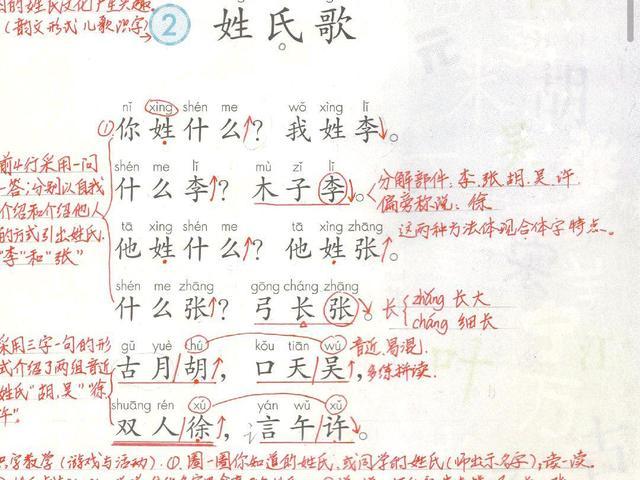 的姓氏文化产生兴趣.
(韵文形式儿歌识字)
② 姓氏歌
nǐ xìng shén me wǒ xìng lǐ
①你姓什么↑? 我姓李↓。
前4行采用一问
一答;分别以自我
介绍和介绍他人
的方式引出姓氏
"李"和"张"
shén me lǐ mù zǐ lǐ
什么李↑? 木子李↓。
分解部件:李.张.胡.吴.许
偏旁称说:徐
这两种方法体现合体字特点。
tā xìng shén me tā xìng zhāng
他姓什么↑? 他姓张↓。
shén me zhāng gōng cháng zhāng
什么张↑? 弓长张↓。
长 zhǎng 长大
cháng 细长
采用三字一句的形
式介绍了两组音近
姓氏"胡,吴""徐
许"。
gǔ yuè hú kǒu tiān wú
古月/胡↑, 口天/吴↓,
音近.易混.
多练拼读.
shuāng rén xú yán wǔ xǔ
双人/徐↑, 言午/许↓。
识字教学(游戏与活动).①.圈一圈你知道的姓氏,或同学的姓氏(师出示名字),读一读.